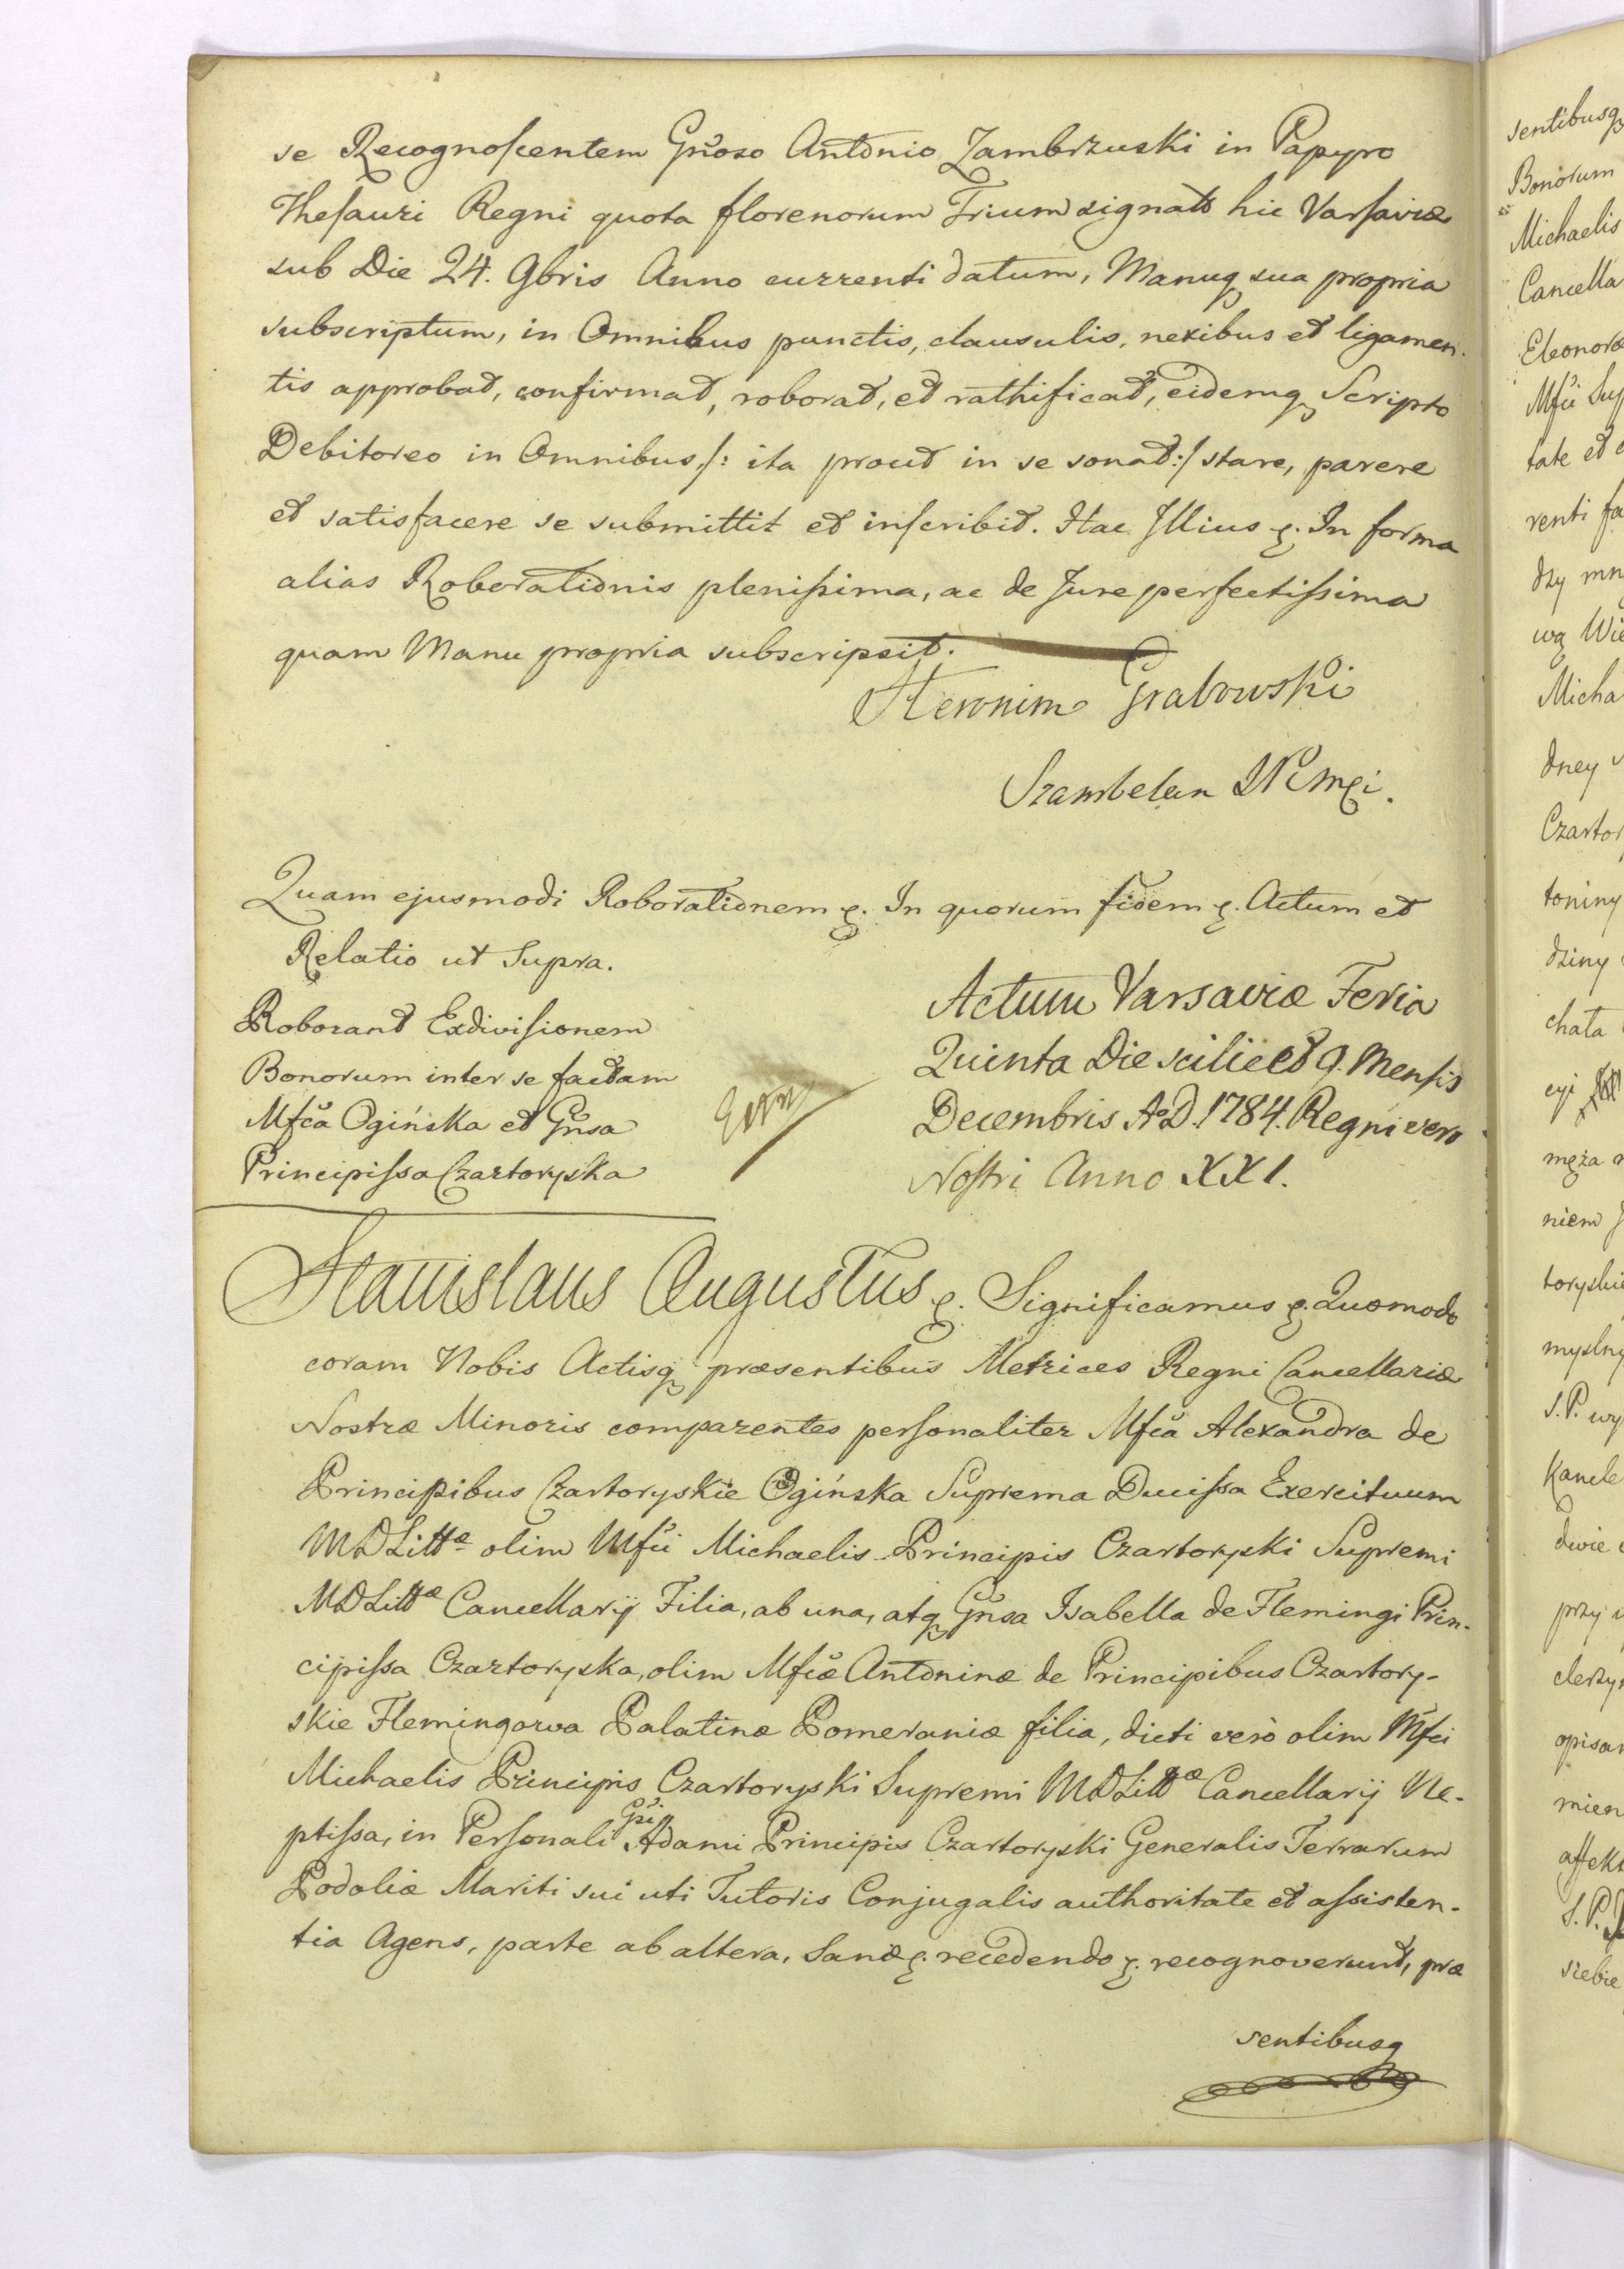 se Recognoscentem Gnoso Antonio Zambrzuski in Papyro
Thesauri Regni quota florenorum Trium signato hic Varsaviæ
sub Die 24. 9bris Anno currenti datum, Manuq sua propria
subscriptum, in Omnibus punctis, clausulis, nexibus et ligamen-
tis approbat, confirmat, roborat, et rathificat, eidemq Scripto
Debitoreo in Omnibus /: ita prout in se sonat :/ stare, parere
et satisfacere se submittit et inscribit. Hac Illius &. In forma
alias Roborationis plenissima, ac de Jure perfectissima
quam Manu propria subscripsit.
Heronim Grabowski
Szambelan JKMci.
Quam ejusmodi Roborationem &. In quorum fidem &. Actum et
Relatio ut Supra.
Roborant Exdivisionem
Bonorum inter se factam
Mfca Ogińska et Gnsa
Principissa Czartoryska
Actum Varsaviæ Feria
Quinta Die scilicet 9. Mensis
Decembris AoD. 1784. Regni vero
Nostri Anno XXI.
Stanislaus Augustus &. Significamus &. Quomodo
coram Nobis Actisq præsentibus Metrices Regni Cancellariæ
Nostræ Minoris comparentes personaliter Mfca Alexandra de
Principibus Czartoryskie Ogińska Suprema Ducissa Exercituum
MDLittæ olim Mfci Michaelis Principis Czartoryski Supremi
MDLittæ Cancellarij Filia, ab una, atq Gnsa Isabella de Flemingi Prin-
cipissa Czartoryska, olim Mfcæ Antoninæ de Principibus Czartory-
skie Flemingowa Palatinæ Pomeraniæ filia, dicti verò olim Mfci
Michaelis Principis Czartoryski Supremi MDLittæ Cancellarij Ne-
ptissa, in Personali Gsi Adami Principis Czartoryski Generalis Terrarum
Podoliæ Mariti sui uti Tutoris Conjugalis authoritate et assisten-
tia Agens, parte ab altera, Sanæ &. recedendo &. recognoverunt, præ
sentibusq
sentibusq
Bonorum
Michaelis
Cancella
Eleonoræ
Mfci Sup
tate et
renti fa
dzy mn
wą Wie
Micha
dney
Czartor
toniny
dziny
chała
męża
niem
toryski
myslny
S.P. wy
Kancle
dwie
przy
opisan
mien
affekt
S.P.
siebie